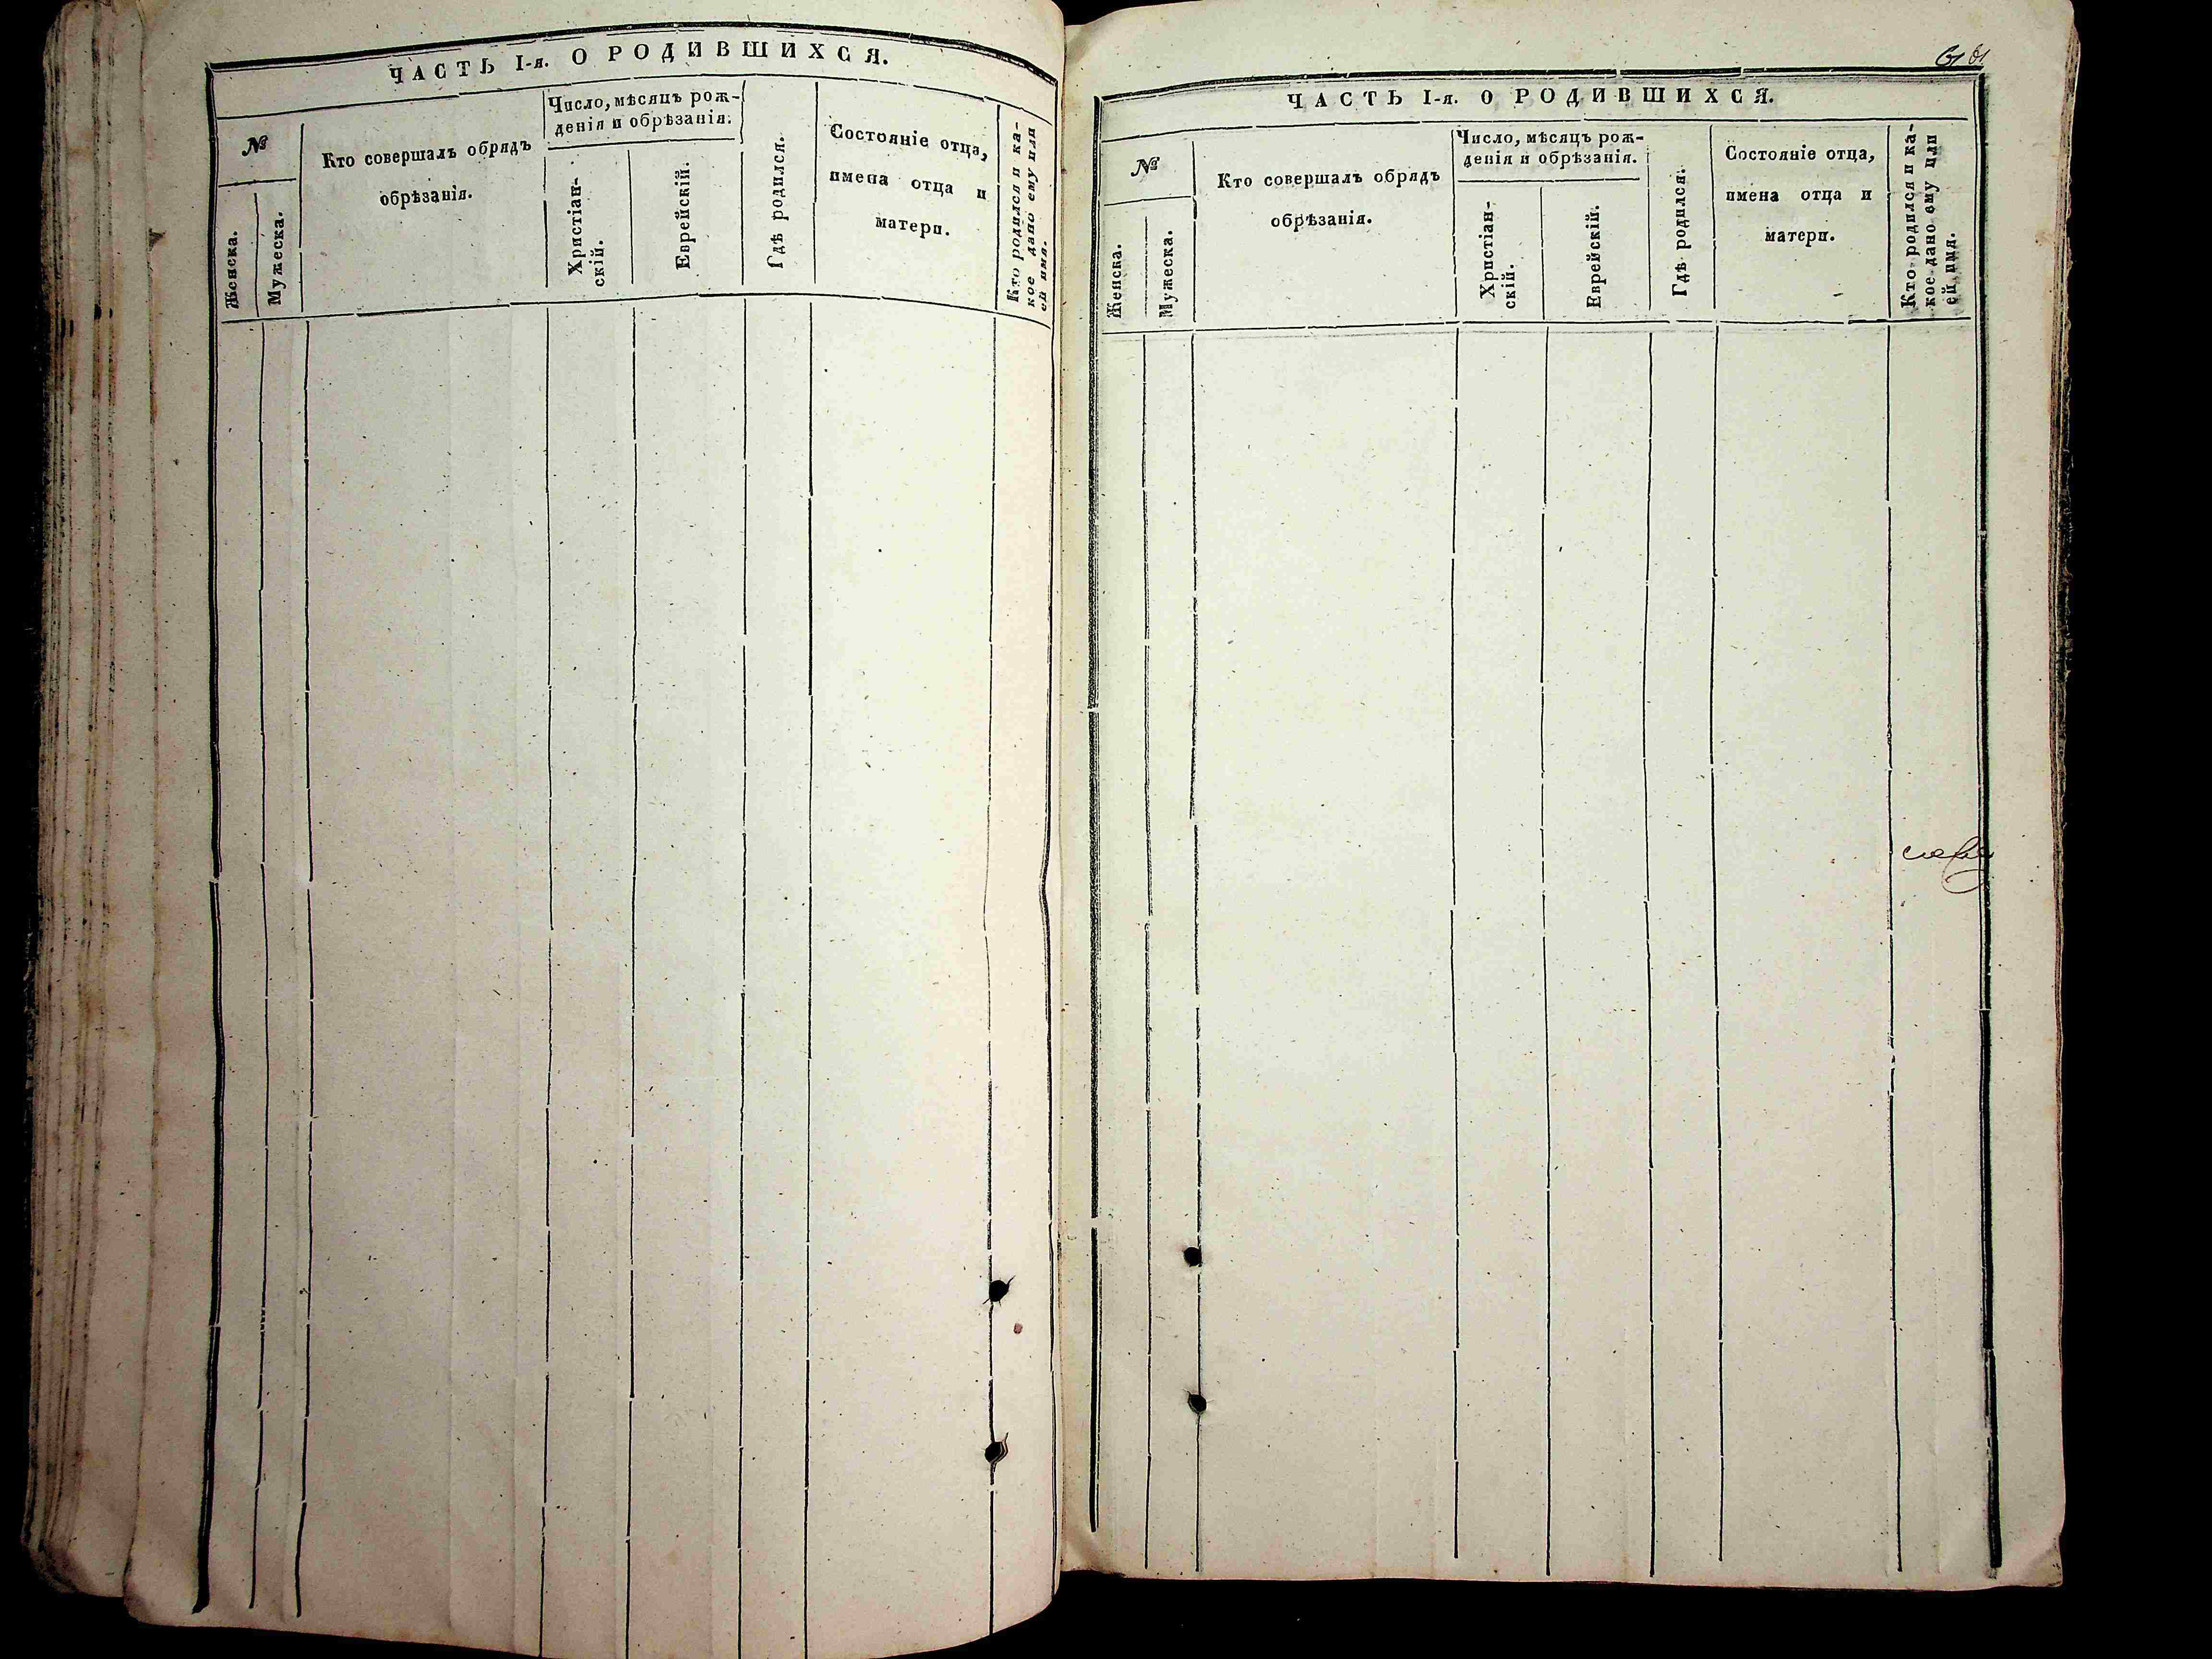 ЧАСТЬ I-я. О РОДИВШИХСЯ.
№
Женска.
Мужеска.
Кто совершалъ обрядъ
обрѣзанія.
Число, мѣсяцъ рож-
денія и обрѣзанія.
Христіан-
скій.
Еврейскій.
Гдѣ родился.
Состояніе отца,
имена отца и
матери.
Кто родился и ка-
кое дано ему или
ей имя.
ЧАСТЬ I-я. О РОДИВШИХСЯ.
№
Женска.
Мужеска.
Кто совершалъ обрядъ
обрѣзанія.
Число, мѣсяцъ рож-
денія и обрѣзанія.
Христіан-
скій.
Еврейскій.
Гдѣ родился.
Состояніе отца,
имена отца и
матери.
Кто родился и ка-
кое дано ему или
ей имя.